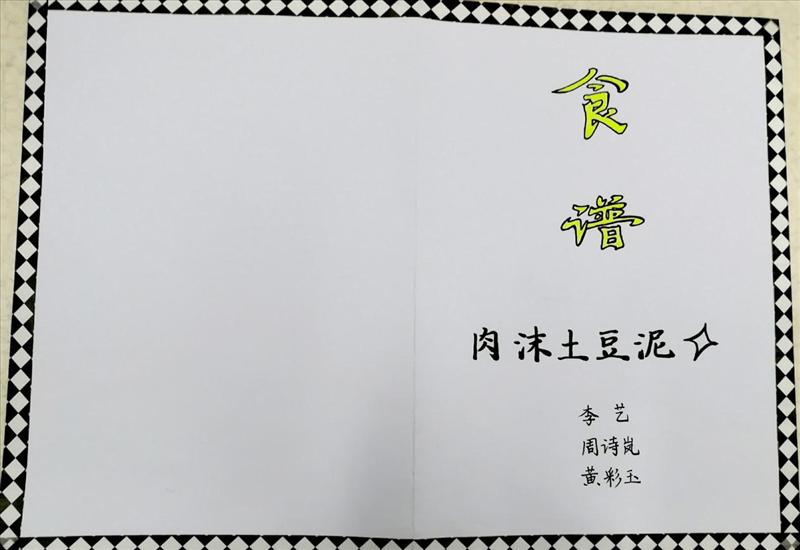 食
谱
肉沫土豆泥
李艺
周诗岚
黄彩玉